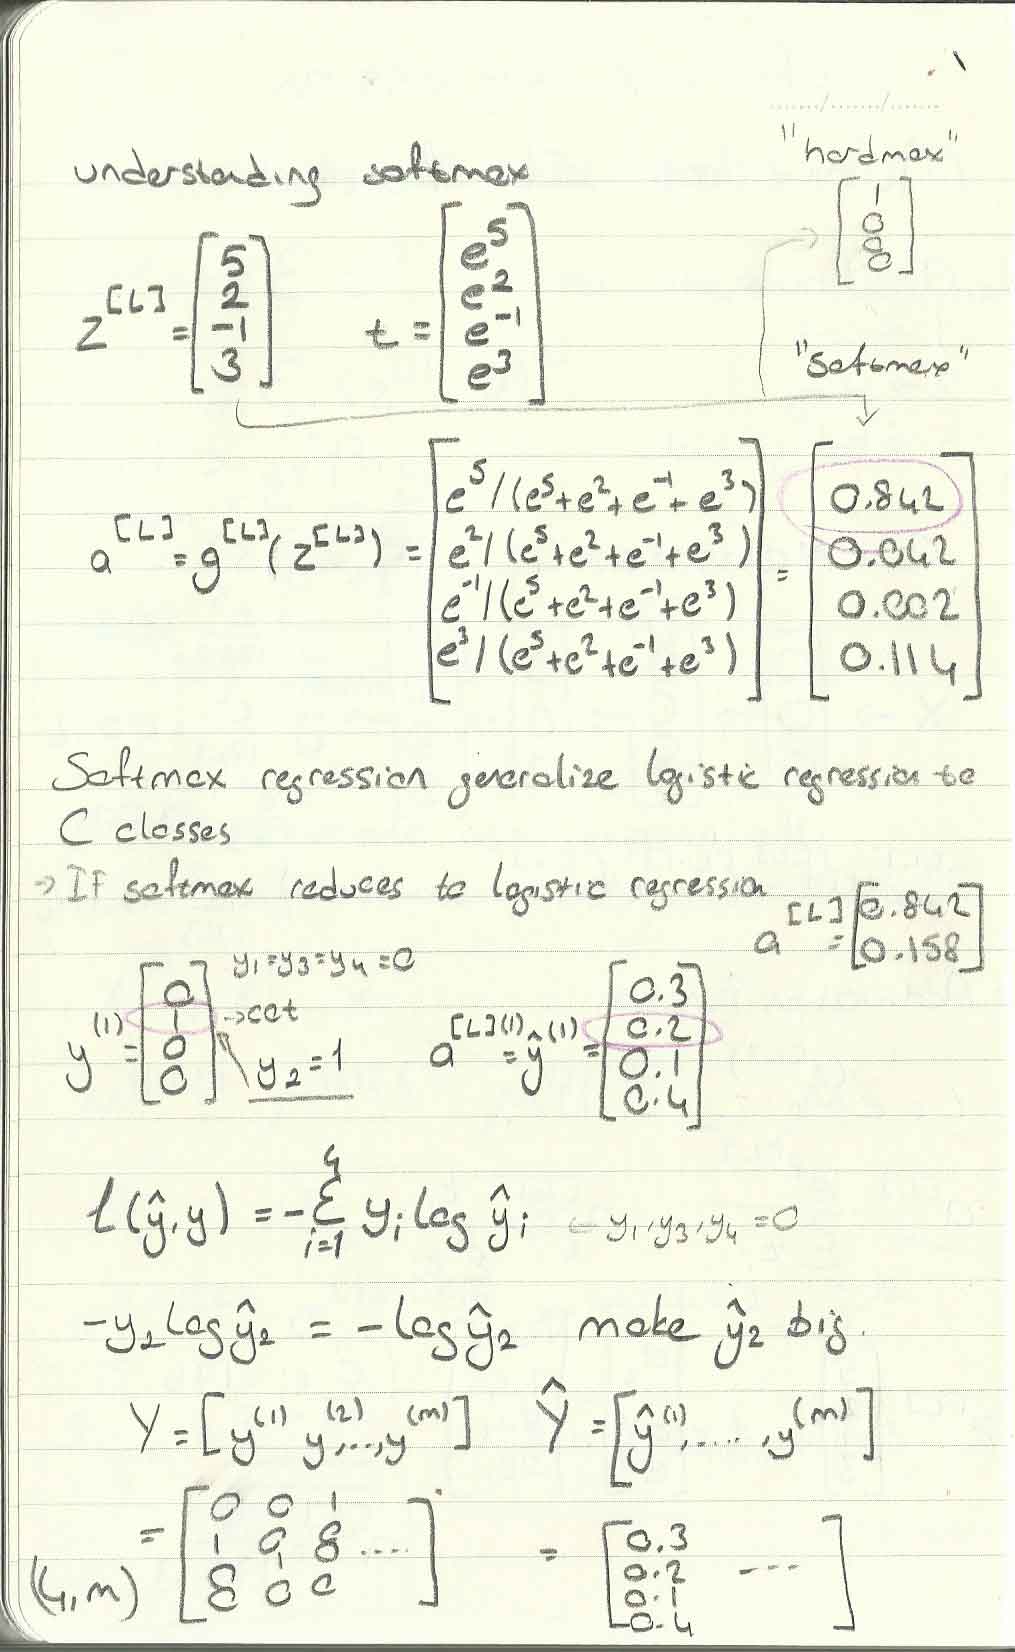 ....../......./.......
"hardmax"
understanding softmax
[1
0
0
0]
z^[L] = [5
2
-1
3]
t = [e^5
e^2
e^-1
e^3]
"softmax"
a^[L] = g^[L](z^[L]) = [e^5/(e^5+e^2+e^-1+e^3)
e^2/(e^5+e^2+e^-1+e^3)
e^-1/(e^5+e^2+e^-1+e^3)
e^3/(e^5+e^2+e^-1+e^3)]
= [0.842
0.042
0.002
0.114]
Softmax regression generalize logistic regression to
C classes
→ If softmax reduces to logistic regression
a^[L] = [0.842
0.158]
y^(1) = [0
1
0
0]
y₁=y₃=y₄=0
→cat
y₂=1
a^[L](1) = ŷ^(1) = [0.3
0.2
0.1
0.4]
ℓ(ŷ,y) = -Σ_{i=1}^{4} y_i log ŷ_i ← y₁,y₃,y₄=0
-y₂ log ŷ₂ = -log ŷ₂ make ŷ₂ big.
Y = [y^(1) y^(2),...,y^(m)]
Ŷ = [ŷ^(1),....,y^(m)]
= [0 0 1
1 0 0 ....
0 1 0
0 0 0]
(4,m)
= [0.3
0.2 ---
0.1
0.4]